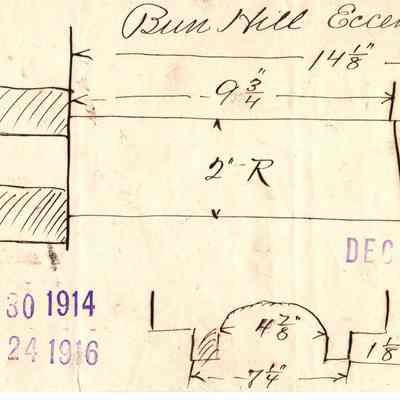 Bun Hill Eccen
14 1/8"
9 3/4"
2" R
DEC
30 1914
24 1916
4 7/8
7 1/4"
1 1/8